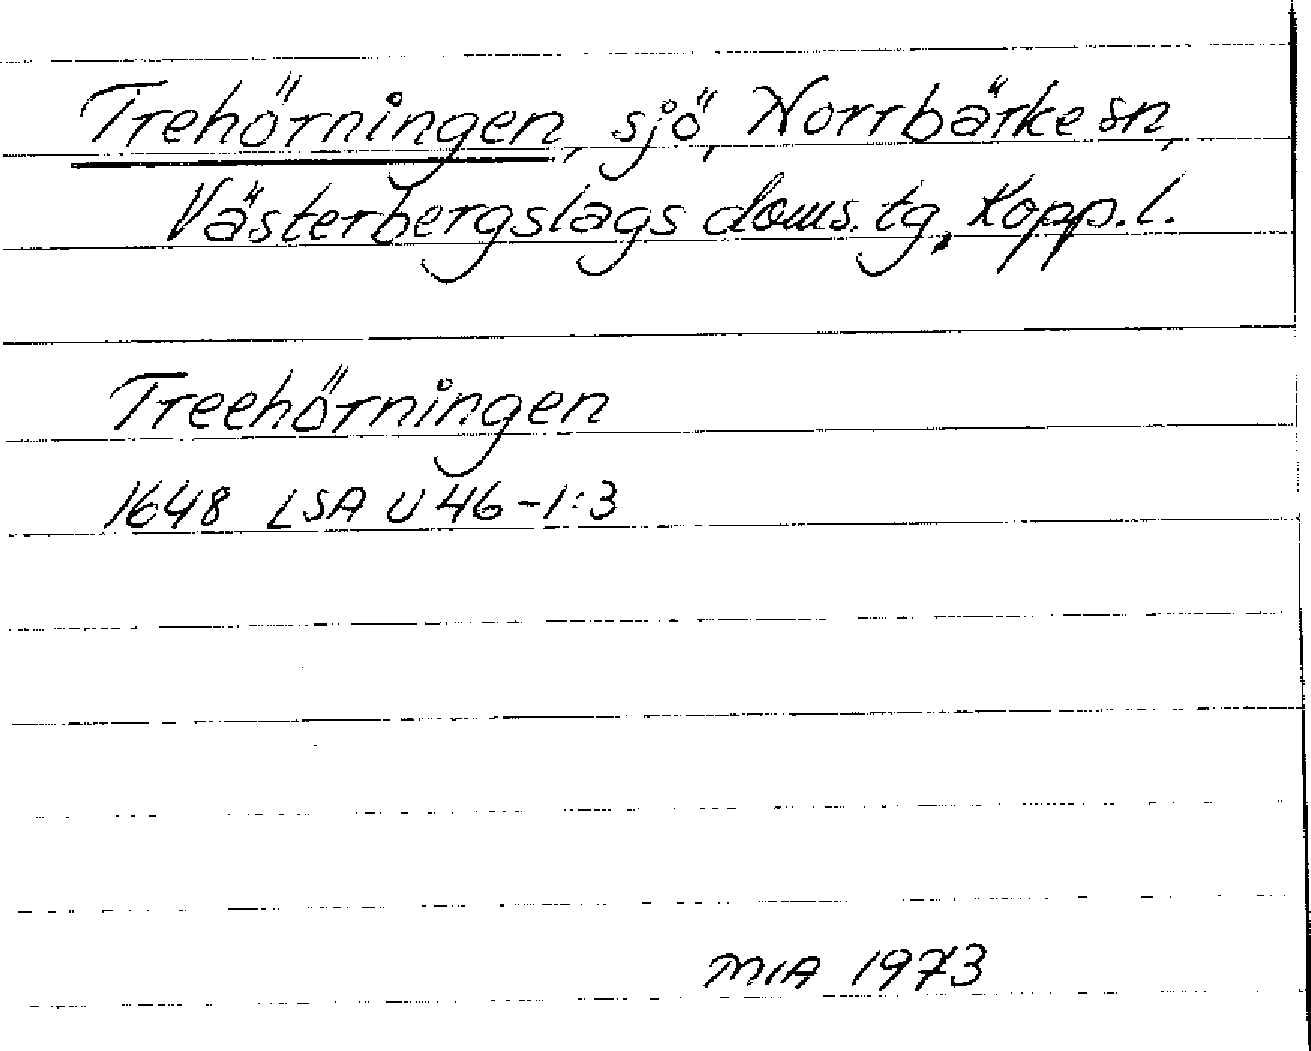 Trehörningen, sjö, Norrbärke sn,
Västerbergslags doms. tg, Kopp. l.
Treehörningen
1648 LSA U 46-1:3
MIA 1973